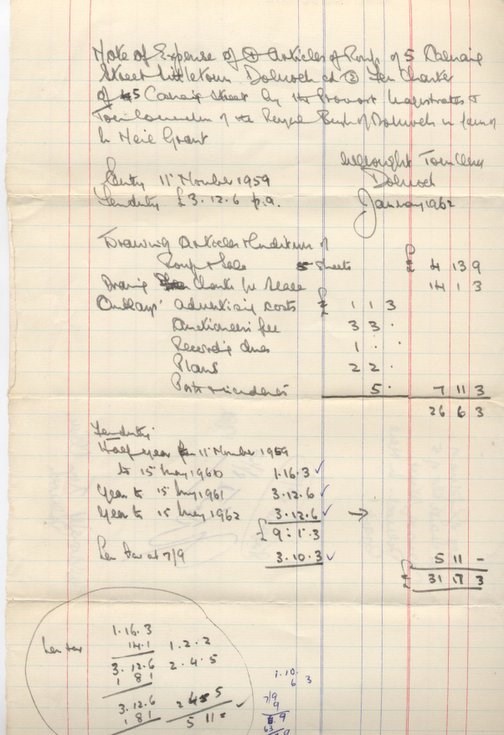 Note of Expense of ① Articles of Roup of 5
Street Littletown Dornoch and ② Feu Charter
of 5 Street by the Provost Magistrates &
Town Councillors of the Royal Burgh of Dornoch in favour
Neil Grant
Town Clerk
Dornoch
January 1962
Entry 11 November 1959
Feuduty £3.12.6 p.a.
Drawing Articles & Conditions of
Roup & Sale 5 sheets £ 4 13 9
Drawing Feu Charter 14 1 3
Outlays: advertising costs £ 1 1 3
Auctioneers fee 3 3 .
Recording dues 1 . .
Plans 2 2 .
Posts & incidents 5 . 7 11 3
26 6 3
Feuduty:
Half year from 11 November 1959
to 15 May 1960 1.16.3 ✓
Year to 15 May 1961 3.12.6 ✓
Year to 15 May 1962 3.12.6 ✓ →
£9.1.3
Less tax at 7/9 3.10.3 ✓ 5 11 -
£ 31 17 3
Less tax
1.16.3
14.1 1.2.2
3.12.6 2.4.5
1 8 1
3.12.6 2 4 5
1 8 1 5 11 = ✓
1.10.
6 3
7/9
9
63